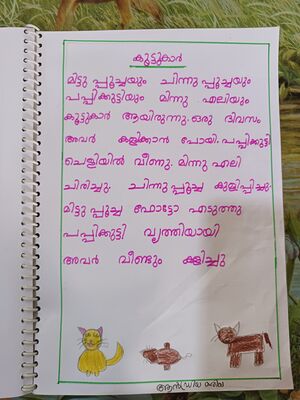 കൂട്ടുകാർ
മിട്ടു പ്പൂച്ചയും ചിന്നു പ്പൂച്ചയും
പപ്പിക്കുട്ടിയും മിന്നു എലിയും
കൂട്ടുകാർ ആയിരുന്നു. ഒരു ദിവസം
അവർ കളിക്കാൻ പോയി. പപ്പിക്കുട്ടി
ചെളിയിൽ വീണു. മിന്നു എലി
ചിരിച്ചു. ചിന്നു പ്പൂച്ച കുളിപ്പിച്ചു.
മിട്ടു പ്പൂച്ച ഫോട്ടോ എടുത്തു
പപ്പിക്കുട്ടി വൃത്തിയായി
അവർ വീണ്ടും കളിച്ചു